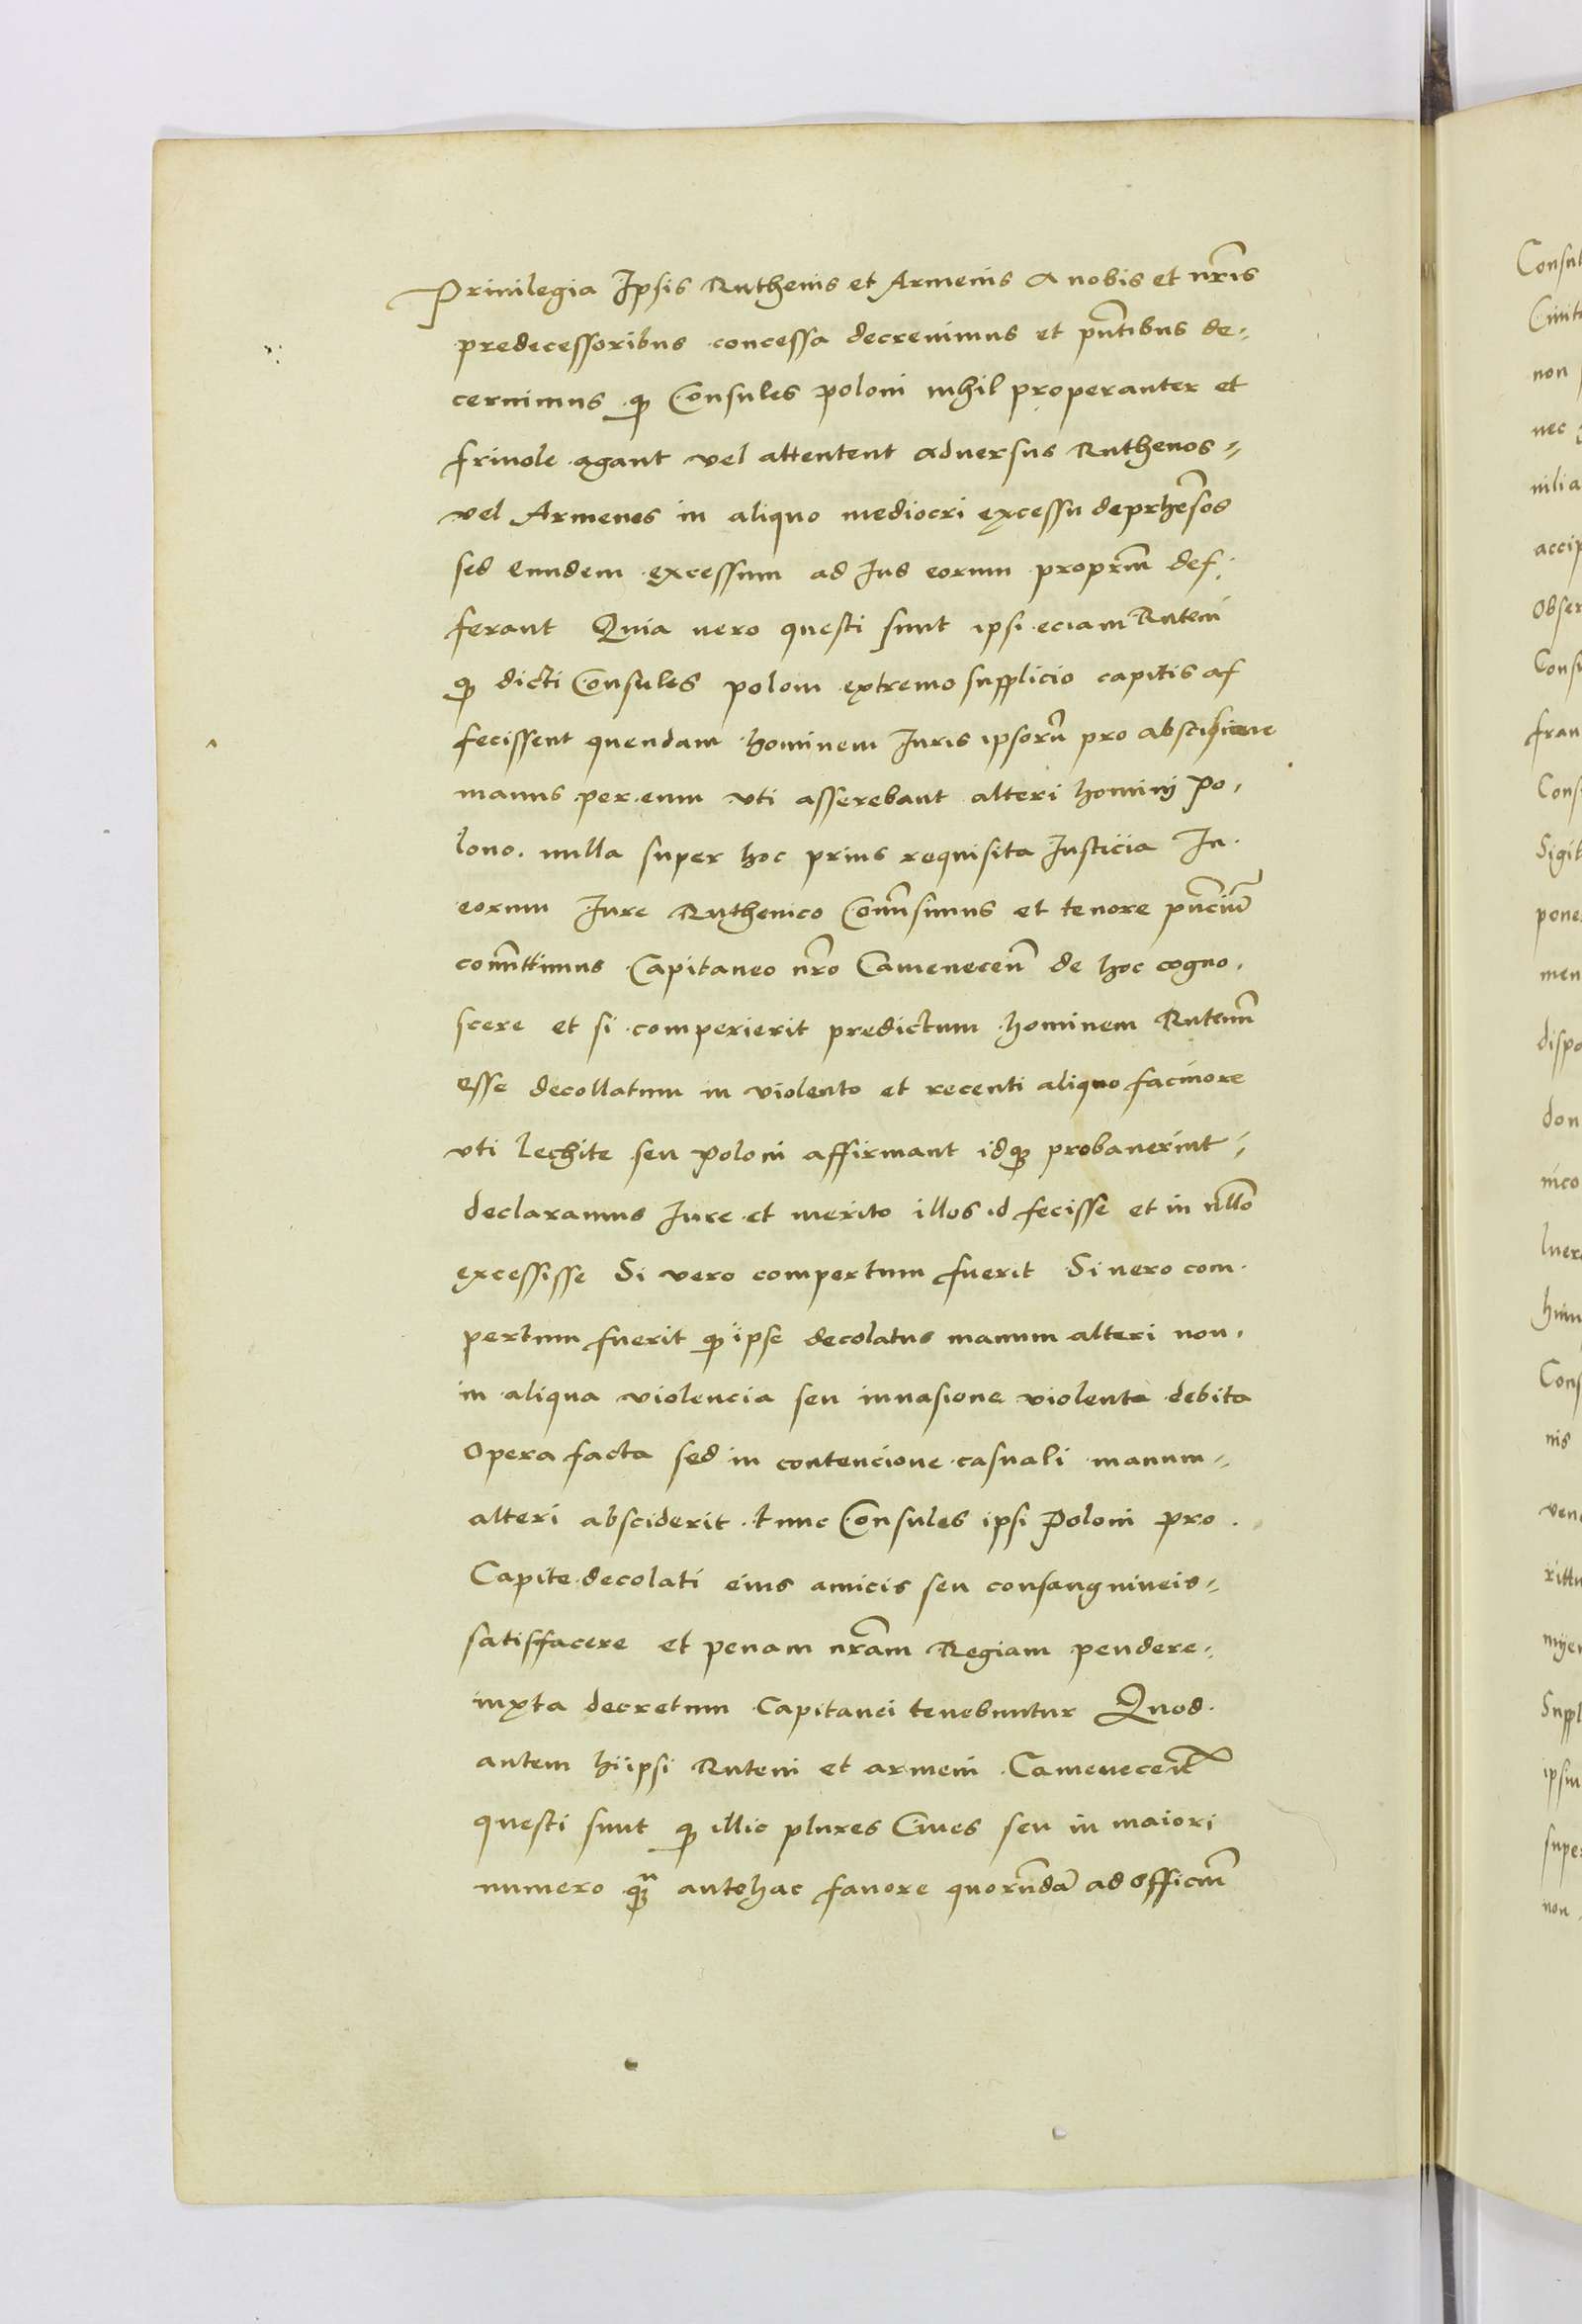 Priuilegia Ipsis Ruthenis et Armenis a nobis et nr̃is
predecessoribus concessa decreuimus et pñtibus de-
cernimus q̃ Consules poloni nihil properanter et
friuole agant vel attentent aduersus Ruthenos=
vel Armenos in aliquo mediocri excessu deprhẽsos
sed eundem excessum ad Ius eorum propriũ def-
ferant Quia uero questi sunt ipsi eciam Ruteni
q̃ dicti Consules poloni extremo supplicio capitis af
fecissent quendam hominem Iuris ipsorũ pro abscisione
manus per eum vti asserebant alteri hominj Po,
lono. nulla super hoc prius requisita Iusticia In
eorum Iure Ruthenico Com̃isimus et tenore pñciũ
com̃ittimus Capitaneo nr̃o Camenecen̄ de hoc cogno,
scere et si comperierit predictum hominem Rutenũ
esse decollatum in violento et recenti aliquo facinore
vti lechite seu poloni affirmant idq̃ probauerint=
declaramus Iure et merito illos id fecisse et in nllõ
excessisse Si vero compertum fuerit Si uero com
pertum fuerit q̃ ipse decolatus manum alteri non,
in aliqua violencia seu inuasione violenta debita
opera facta sed in contencione casuali manum=
alteri absciderit. tunc Consules ipsi Poloni pro
Capite decolati eius amicis seu consangvineis=
satisfacere et penam nr̃am Regiam pendere=
iuxta decretum Capitanei tenebuntur Quod
autem hi ipsi Ruteni et armeni Camenecen̄
questi sunt q̃ illic plures Ciues seu in maiori
numero q̃ antehac fauore quorũdã ad officiũ
Consul
non
nec
accip
Obser
Consu
fran
Cons
Sigil
pone
men
dispo
don
Cons
nis
Suppl
ipsiu
supe
non